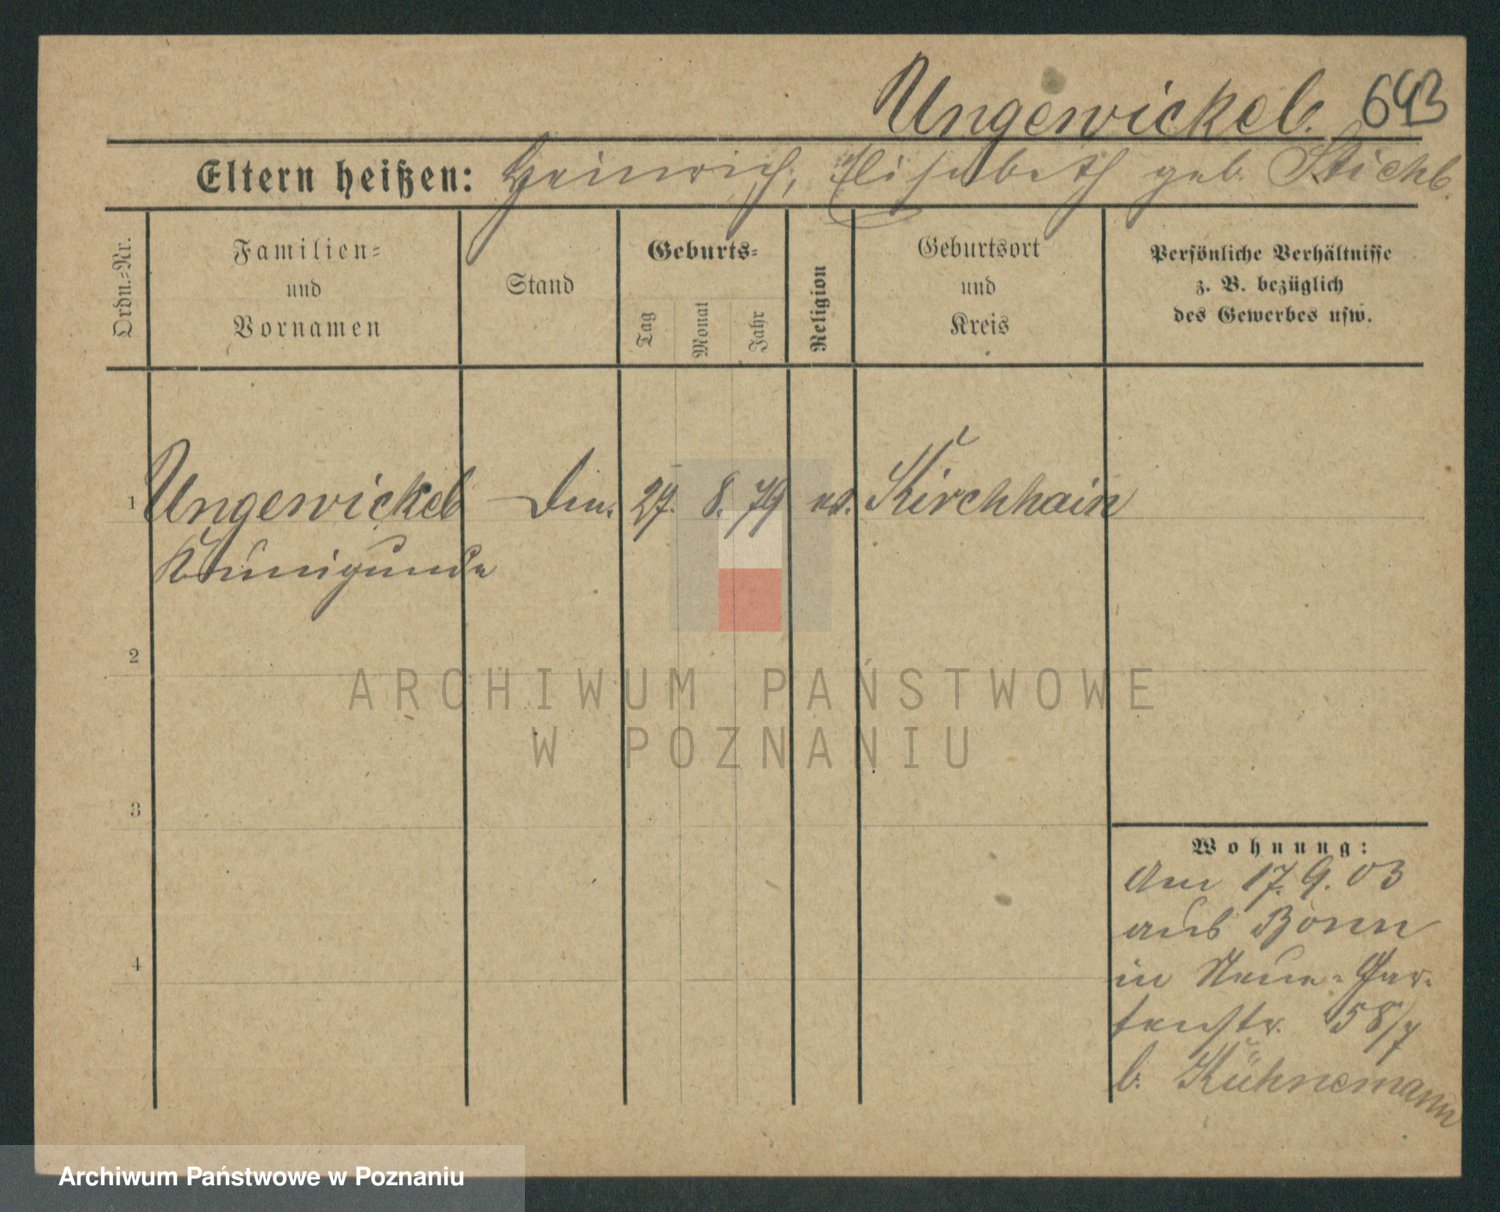 Ungewickel. 643
Eltern heißen: Heinrich, Elisabeth geb. Stichl
Ordn.=Nr.
Familien=
und
Vornamen
Stand
Geburts=
Tag
Monat
Jahr
Religion
Geburtsort
und
Kreis
Persönliche Verhältnisse
z. B. bezüglich
des Gewerbes usw.
1 Ungewickel Din. 29. 8. 79 ev. Kirchhain
Kunigunde
2
ARCHIWUM PAŃSTWOWE
W POZNANIU
3
Wohnung:
Am 17. 9. 03
aus Bonn
4
in Neue=Gar-
tenstr. 58/7
b. Kühnemann
Archiwum Państwowe w Poznaniu